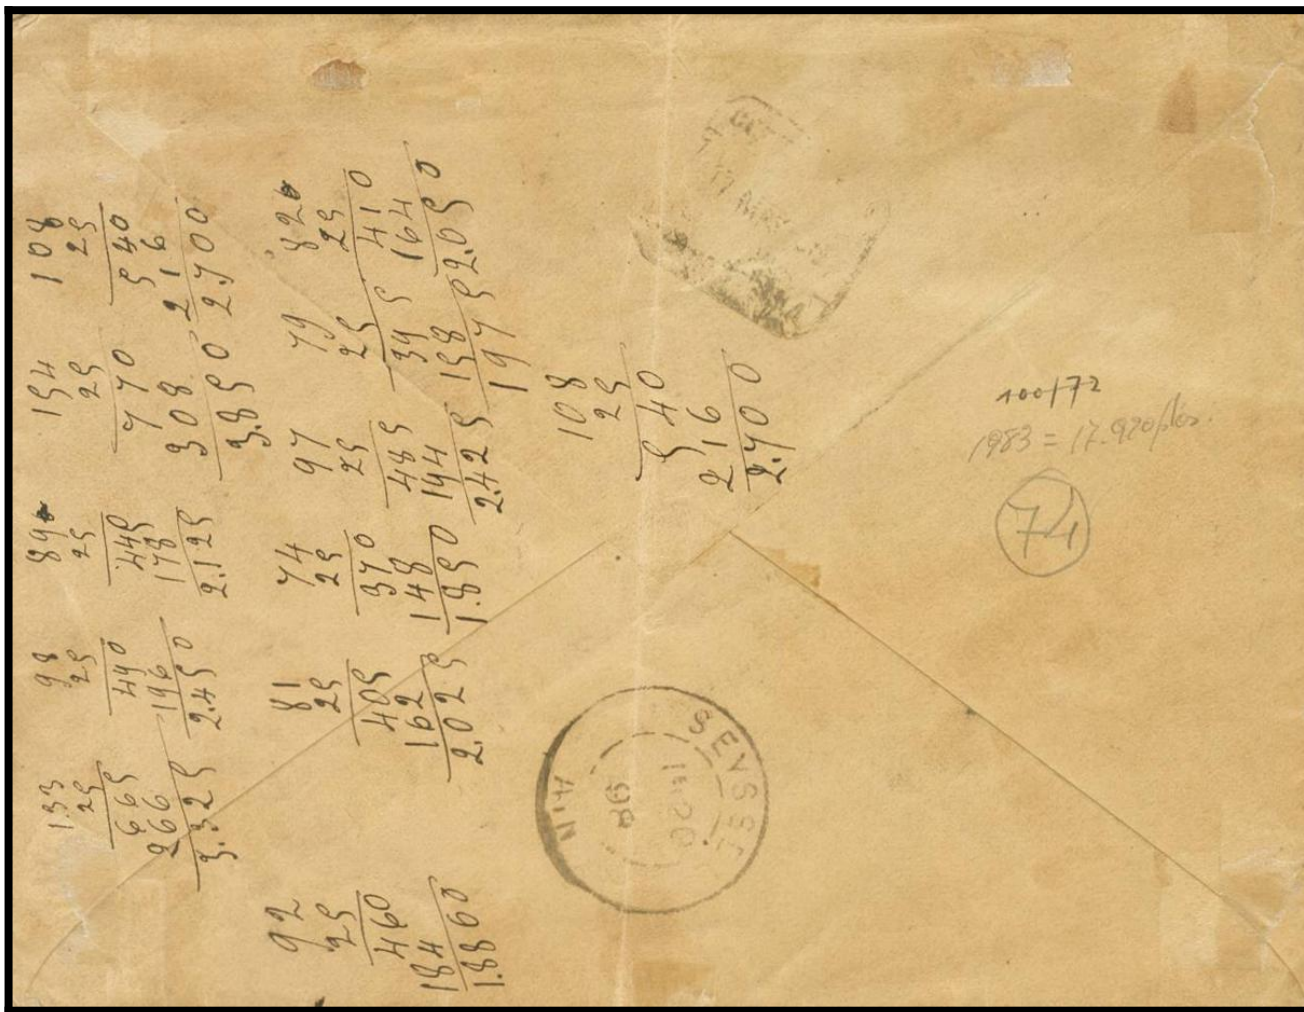 133
25
665
266
3.325
98
25
490
196
2.450
89
25
445
178
2.125
154
25
770
308
3.850
108
25
540
216
2.700
92
25
460
184
1.8860
81
25
405
162
2.025
74
25
370
148
1.850
97
25
485
194
2.425
79
25
395
158
1975
82
25
410
164
2.050
108
25
540
216
2.700
100/72
1983 = 17.920 ptas.
74
SEYSSEL
98
AIN